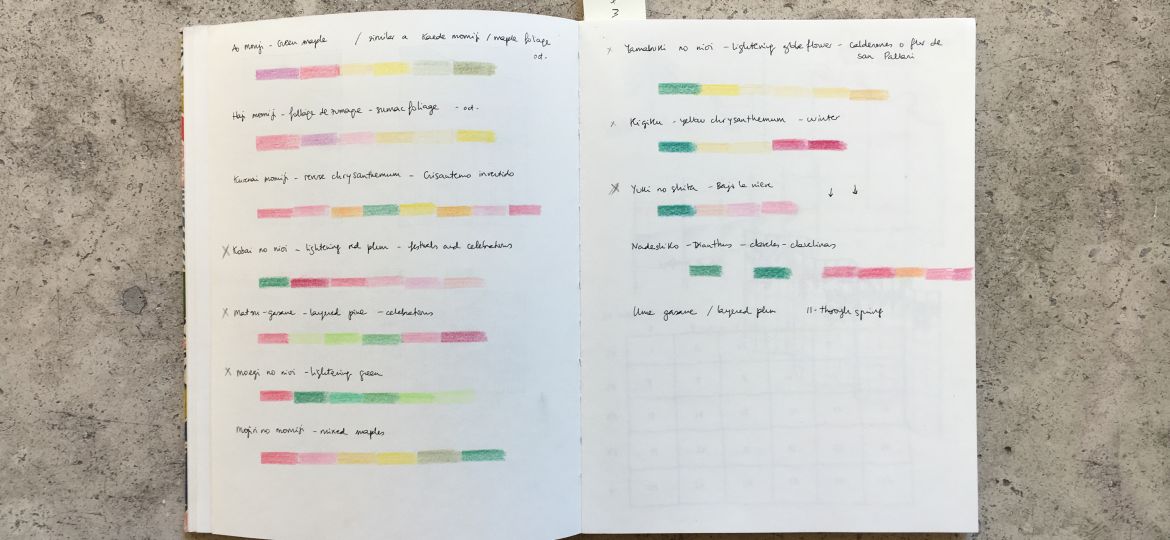 3
Ao momiji - Green maple / similar a Kaede momiji / maple foliage
oct.
Haji momiji - follage de sumaque - sumac foliage - oct.
Kurenai momiji - reverse chrysanthemum - Crisantemo invertido
x Kobai no nioi - lightening red plum - festivals and celebrations
x Matsu-gasane - layered pine - celebrations
x Moegi no nioi - lightening green
Mojiri no momiji - mixed maples
x Yamabuki no nioi - lightening globe flower - Calderones o flor de
san Pallari
x Kigiku - yellow chrysanthemum - winter
x Yuki no shita - Bajo la nieve ↓ ↓
Nadeshiko - Dianthus - claveles - clavelinas
Ume gasane / layered plum 11-through spring